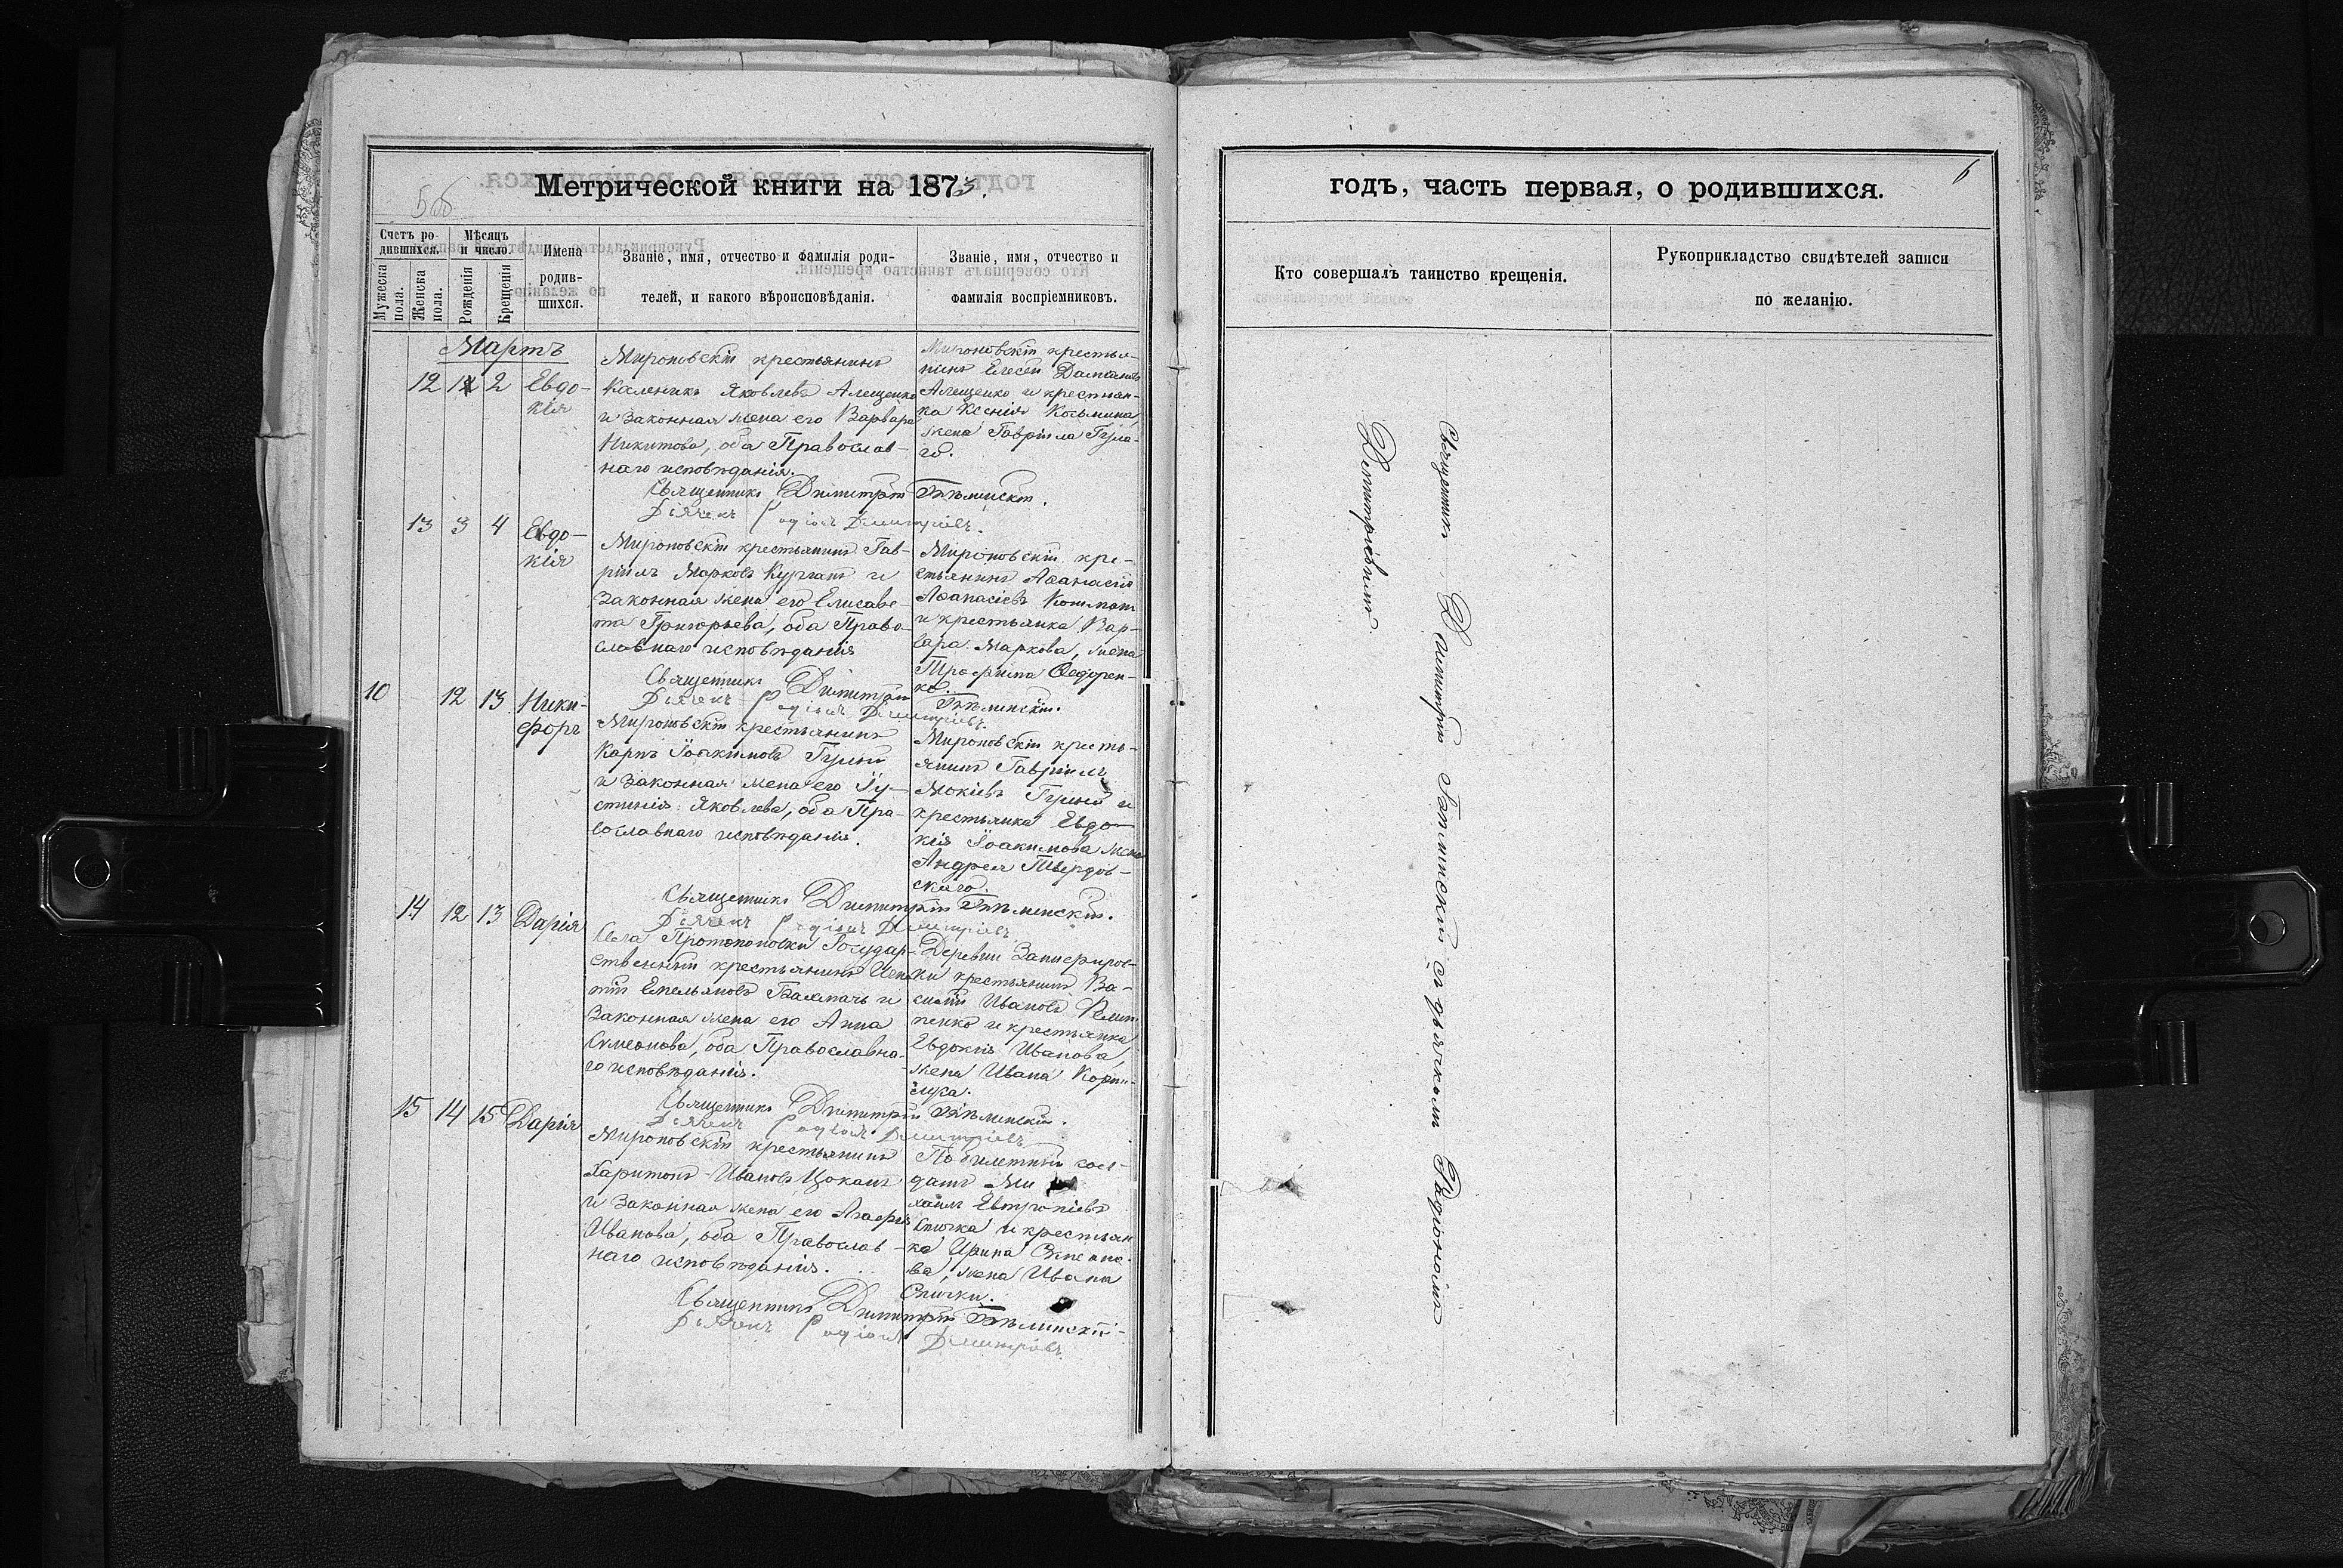 Метрической книги на 1873.
5об
Счетъ ро-
дившихся.
Мужеска
пола.
Женска
пола.
Мѣсяцъ
и число.
Рожденія
Крещенія
Имена
родив-
шихся.
Званіе, имя, отчество и фамилія роди-
телей, и какого вѣроисповѣданія.
Званіе, имя, отчество и
фамилія воспріемниковъ.
Мартъ
12 1 2 Евдо-
кія
Мироновскій крестьянинъ
Каленикъ Яковлевъ Алещенко
и законная жена его Варвара
Никитова, оба Православ-
наго исповѣданія.
Мироновскій крестья-
нинъ Елесей Даміановъ
Алещенко и крестьян-
ка Ксенія Косьмина,
жена Гавріила Гула-
го.
Священникъ Димитрій Бѣлинскій.
Дьячекъ Родіонъ Димитріевъ.
13 3 4 Евдо-
кія
Мироновскій крестьянинъ Гав-
ріилъ Марковъ Курганъ и
законная жена его Елисаве-
та Григорьева, оба Право-
славнаго исповѣданія
Мироновскій кре-
стьянинъ Аѳанасій
Аѳанасіевъ
и крестьянка Вар-
вара Маркова, жена
Трофима Ѳедорен-
ко.
Священникъ Димитрій Бѣлинскій.
Дьячекъ Родіонъ Димитріевъ.
10 12 13 Ники-
форъ
Мироновскій крестьянинъ
Карпъ Іоакимовъ
и законная жена его Іу-
стинія Яковлева, оба Пра-
вославнаго исповѣданія.
Мироновскій кресть-
янинъ Гавріилъ
Мокіевъ и
крестьянка Евдо-
кія Іоакимова жена
Андрея Твердов-
скаго.
Священникъ Димитрій Бѣлинскій.
Дьячекъ Родіонъ Димитріевъ
14 12 13 Дарія
Села Протопоповки Государ-
ственный крестьянинъ Ипа-
тій Емельяновъ и
законная жена его Анна
Симеонова, оба Православна-
го исповѣданія.
Деревни Занфиров-
ки крестьянинъ Ва-
силій Ивановъ
и крестьянка
Евдокія Иванова,
жена Ивана
Священникъ Димитрій Бѣлинскій.
Дьячекъ Родіонъ Димитріевъ
15 14 15 Дарія
Мироновскій крестьянинъ
Харитонъ Ивановъ Цоканъ
и законная жена его Агафія
Иванова, оба Православ-
наго исповѣданія.
По билетный сол-
датъ Ми
хаилъ Евтропіевъ
Спичка и крестьян
ка Ирина Симеоно-
ва, жена Ивана
Спички.
Священникъ Димитрій Бѣлинскій
Дьячекъ Родіонъ Димитріевъ
годъ, часть первая, о родившихся.
6
Кто совершалъ таинство крещенія.
Рукоприкладство свидѣтелей записи
по желанію.
Священникъ Димитрій Бѣлинскій съ дьячкомъ Родіономъ
Димитріевымъ.